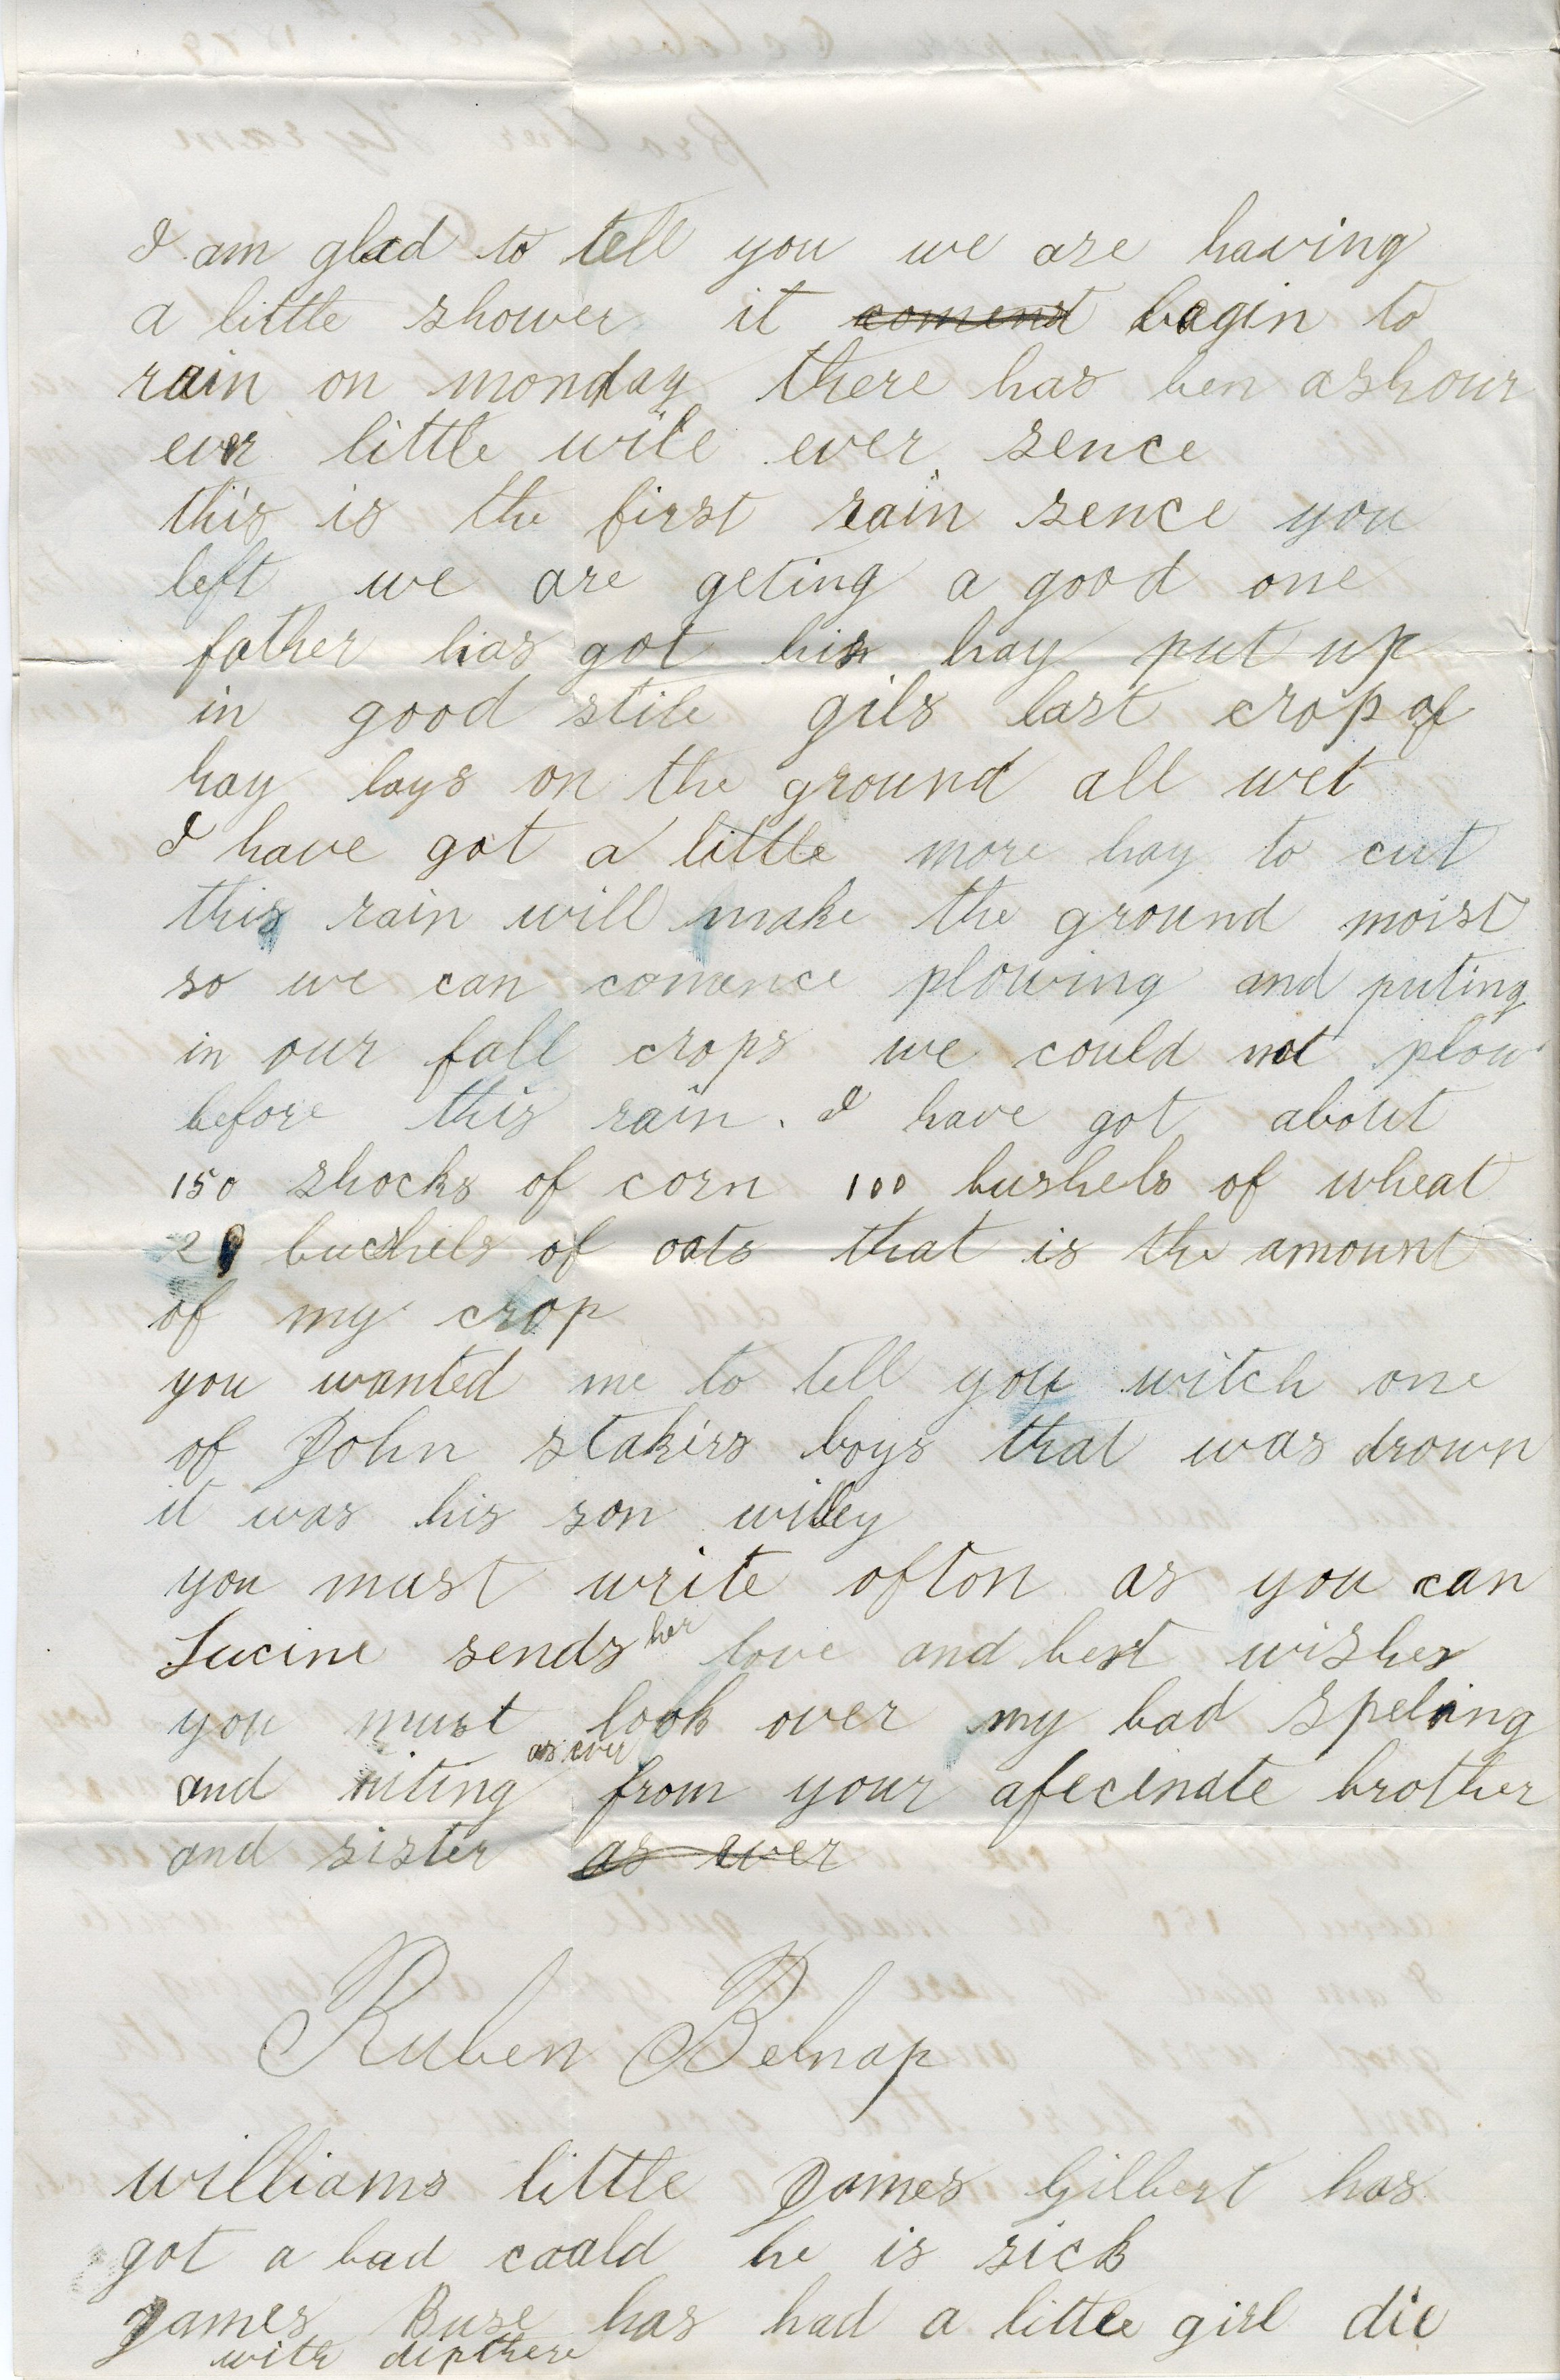 I am glad to tell you we are having
a little shower it comend begin to
rain on monday there has ben a shour
ever little wile ever sence
this is the first rain sence you
left we are geting a good one
father has got his hay put up
in good stile gils last crop of
hay lays on the ground all wet
I have got a little more hay to cut
this rain will make the ground moist
so we can comence plowing and puting
in our fall crops we could not plow
before this rain. I have got about
150 shocks of corn 100 bushels of wheat
bushels of oats that is the amount
of my crop
you wanted me to tell you witch one
of John stakirs boys that was drown
it was his son willey
you must write ofton as you can
Lucine sends her love and best wishes
you must look over my bad speling
and riting as ever from your afecinate brother
and sister as ever
Ruben Belnap
williams little James Gilbert has
got a bad coald he is sick
James Buse has had a little girl die
with dipthere